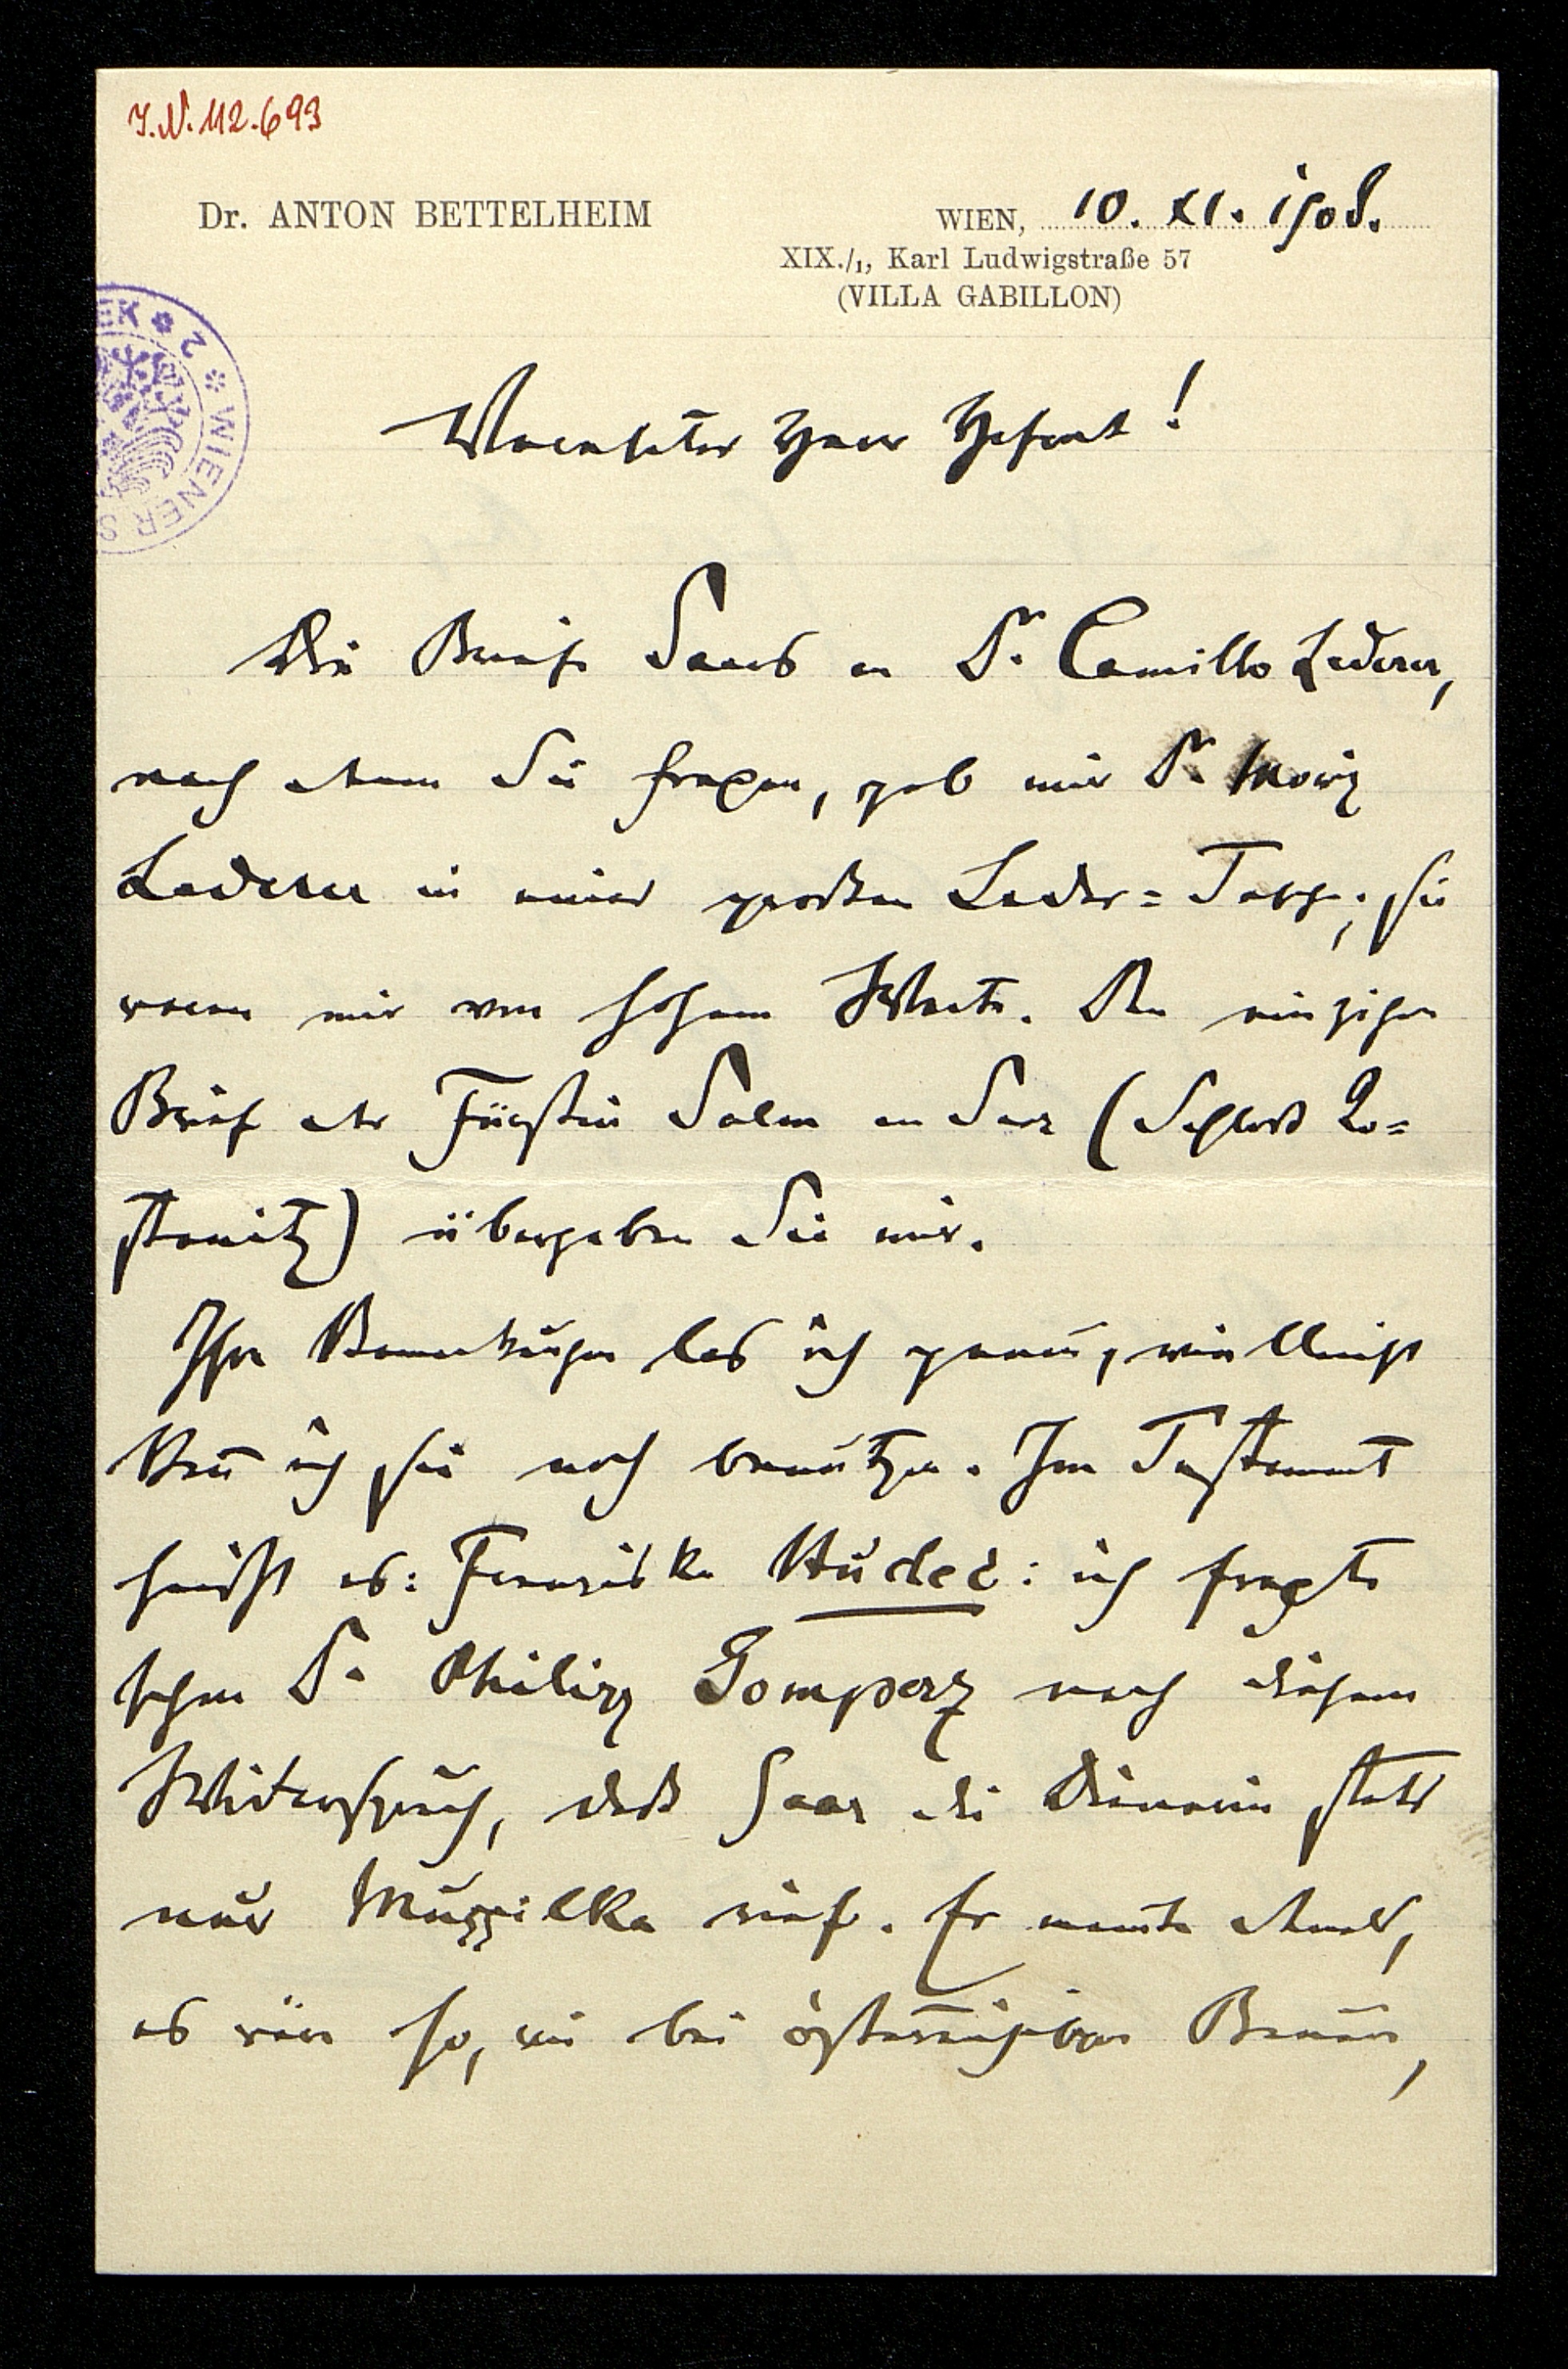 I.N. 112.693
Dr. ANTON BETTELHEIM
WIEN, 10. XI. 1908.
XIX./1, Karl Ludwigstraße 57
(VILLA GABILLON)
EK * 2 * WIENER S
Verehrter Herr !
Die Briefe Saars an Dr. Camillo Lederer,
nach denen Sie fragen, gab mir Dr. Moriz
Lederer in einer großen Leder-Tasche; sie
waren mir von hohem Werte. Den einzigen
Brief der Fürstin Salm an Saar (Schloß Ro=
stanitz) übergaben Sie mir.
Ihre Bemerkungen las ich genau, vielleicht
kann ich sie noch benutzen. Im Testament
heißt es: Franziska Hudec: ich fragte
schon Dr. Philipp Gomperz nach diesem
Widerspruch, daß Saar die Dienerin stets
nur Muzzilka rief. Er meinte damals,
es wäre so, wie bei österreichischen